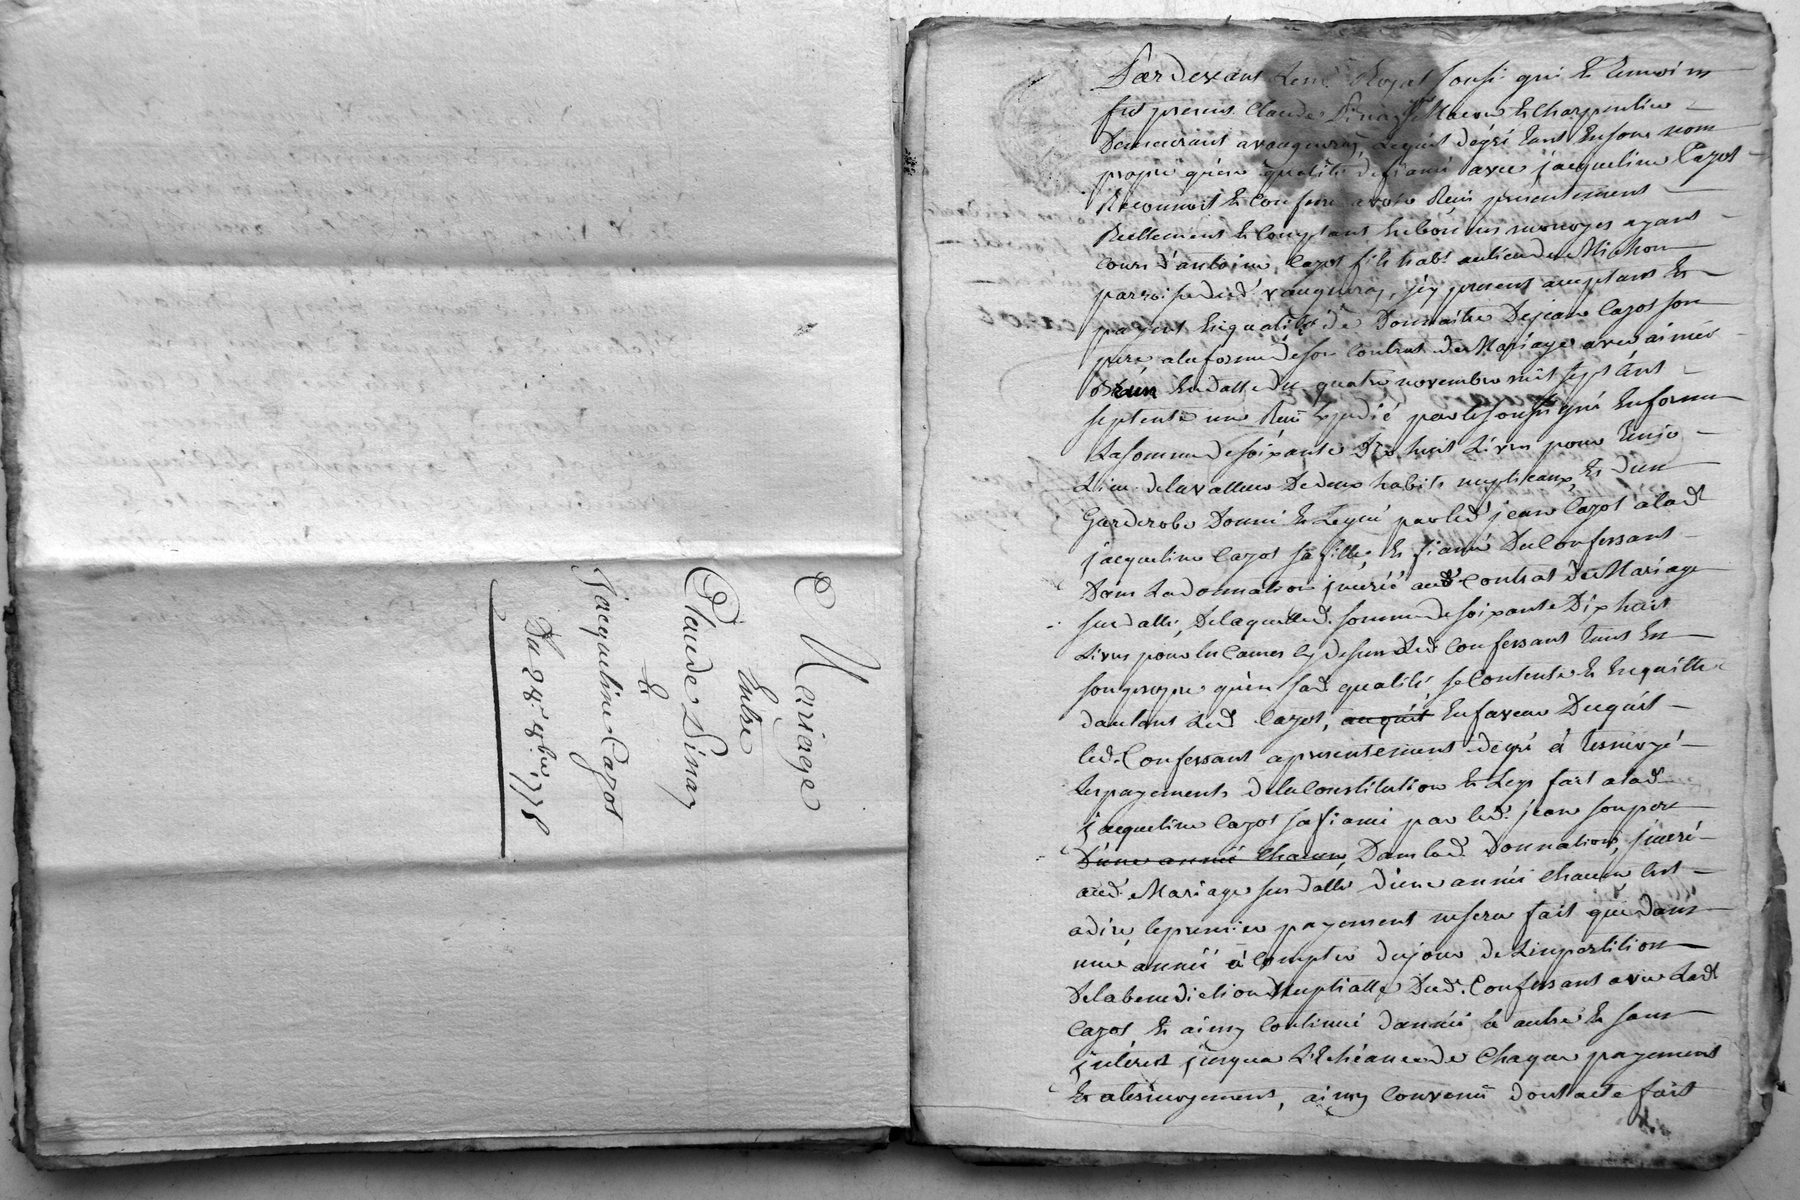 Mariage
Entre
Claude Pinay
Et
Jacqueline Cazot
Du 28e 9bre 1778
Pardevant René soussigné Et temoins
fut present Claude Pinay Macon Et Charpentier
Demeurant a vaugneray, Lequel degré tant En son nom
propre qu'en qualité de fiancé avec jacqueline Cazot
Reconnoit Et Confesse avoir Reçu presentement
Reellement Et Comptant En bonnes monoyes ayant
cours d'antoine Cazot fils habt au lieu de Michon
parroisse dud vaugneray, jcy present acceptant Et
payant En qualité de Donnataire De jean Cazot son
pere a la forme de son Contrat de Mariage avec aimée
En datte du quatre novembre mil sept cent
septente un Reçu Expedié par le soussigné En forme
La somme de soixante Dix huit Livres pour tenir
Lieu de la valleur De deux habits nuptieaux, Et d'un
Garderobe Donné Et Legué par led jean Cazot a lad
jacqueline Cazot sa fille Et fiancé Du Confessant
Dans La donnation jnseré aud Contrat de Mariage
sus datté, De laquelle d. somme de soixante Dix huit
Livres pour les Causes cy dessus Led Confessant tant En
son propre qu'en sad qualité, se Contente Et En quitte
dautant Led Cazot, acquit En faveur Duquel
led. Confessant a presentement degré attermoyé
Les payements de la Constitution Et Legs fait a lad
jacqueline Cazot sa fiancé par led. jean son pere
D'une année Chacun, Dans lad. Donnation, jnseré
aud. Mariage sus datté d'une année chacun Cest
a dire le premier payement ne sera fait que dans
une année a Compter du jour de L'impartition
De la benediction Nuptialle Dud. Confessant avec Lad
Cazot Et ainsy Continué d'année a autre Et sans
jnterest jusqu'a L'Echeance de Chaque payement
Et atermoyement, ainsy Convenu dont acte fait